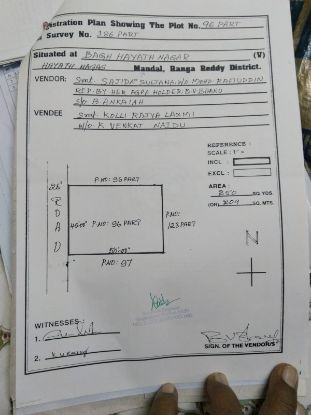 Registration Plan Showing The Plot No. 96 PART
Survey No. 186 PART
Situated at BAGH HAYATH NAGAR (V)
HAYATH NAGAR Mandal, Ranga Reddy District.
VENDOR: Smt. SAJIDA SULTANA W/o MOHD RAFIUDDIN
REP. BY HER AGPA HOLDER B.V. BHANU
S/o B. ANKAIAH
VENDEE Smt KOLLI RATYA LAXMI
W/o K VENKAT NAIDU
REFERENCE :
SCALE : 1" =
INCL :
EXCL :
AREA :
250 SQ. YDS.
(OR) 209 SQ. MTS.
P.NO: 96 PART
25'
ROAD
45'00" P.NO: 96 PART
P.NO:
123 PART
50'-00"
P.NO: 97
N
WITNESSES :
1.
2.
SIGN. OF THE VENDOR/S